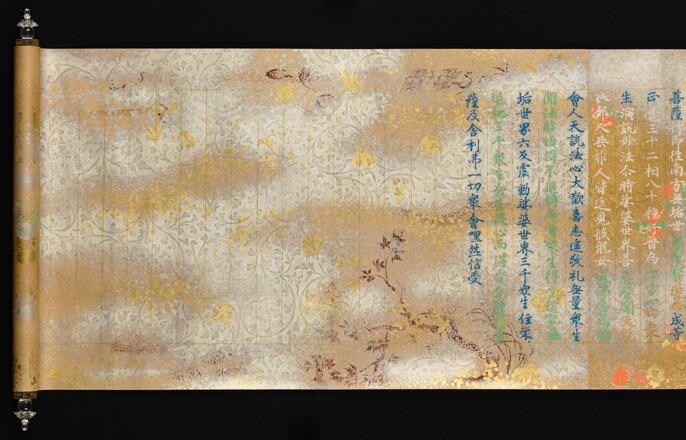 菩薩行即往南方無垢世成等
正三十二相八十種好普為十方一切衆
生演說妙法尒時娑婆世界菩
八部人與非人皆遙見彼龍女
會人天說法心大歡喜悉遙敬礼無量衆生
聞法解悟得不退轉無量衆生得受道記無
垢世界六反震動娑婆世界三千衆生住不
退地三千衆生發菩提心而得受
薩及舍利弗一切衆會嘿然信受